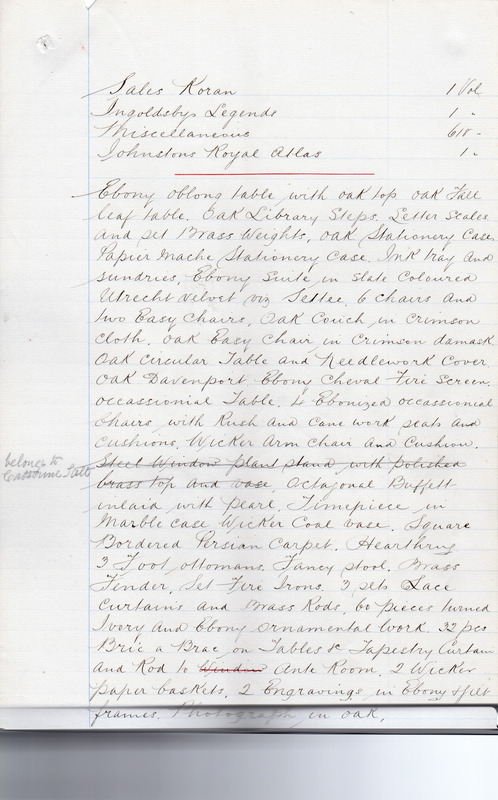 Sales Koran 1 Vol
Ingoldsbys Legends 1 "
Miscellaneous 618 "
Johnstons Royal Atlas 1 "
Ebony oblong table with oak top. oak Fall
leaf table. Oak Library Steps. Letter Scales
and set Brass Weights, oak Stationery Cases
Papier mache Stationery Case. Ink tray and
sundries, Ebony Suite in Slate Coloured
Utrecht velvet viz Settee, 6 chairs and
two Easy Chairs, Oak Couch in Crimson
cloth. oak Easy Chair in Crimson damask
Oak circular Table and Needlework Cover.
Oak Davenport Ebony Cheval Fire Screen.
occassionial Table. 4 Ebonized occassional
Chairs with Rush and Cane work seats and
Cushions, Wicker Arm Chair and Cushion.
belongs to
Steel Window plant stand with polished
brass top and vase, Octagonal Buffett
inlaid with pearl, Timepiece in
Marble case Wicker Coal vase. Square
Bordered Persian Carpet. Hearthrug
3 Foot ottomans. Fancy stool. Brass
Fender, Set Fire Irons. 3 sets Lace
Curtains and Brass Rods, 60 pieces turned
Ivory and Ebony ornamental work. 32 pcs
Bric a Brac on Tables &c Tapestry Curtain
and Rod to Window Ante Room, 2 Wicker
paper baskets, 2 Engravings in Ebony & gilt
frames. Photograph in oak,